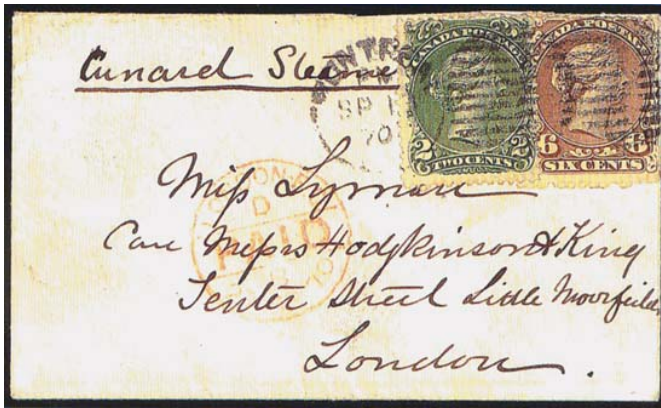 Cunard Steamer
MONTREAL
SP 1
70
CANADA POSTAGE
2 2
TWO CENTS
CANADA POSTAGE
6 6
SIX CENTS
LONDON
D
PAID
70
Miss Lyman
Care Messrs Hodgkinson & King
Tenter Street Little Moorfields
London.